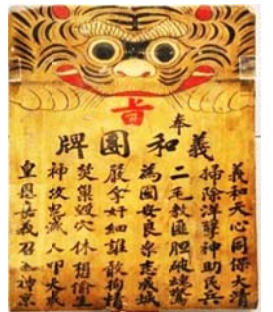 奉
旨
義和團牌
義和天心同保大清
掃除洋孽神助民兵
二毛教匪胆破魂驚
為國安良眾志成城
嚴拿奸細誰敢
焚巢毀穴休想偷生
神滅人甲大
皇恩義召神京